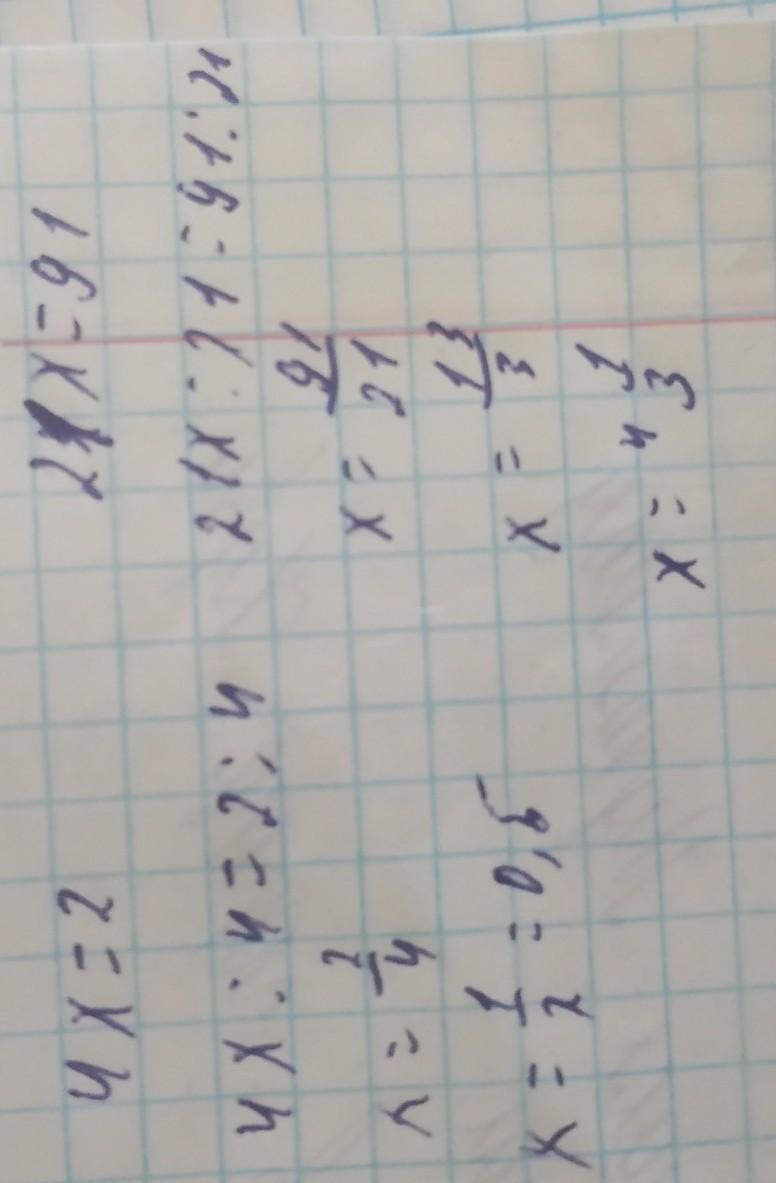 4x=2
4x:4=2:4
x=2/4
x=1/2=0,5
21x=91
21x:21=91:21
x=91/21
x=13/3
x=4 1/3